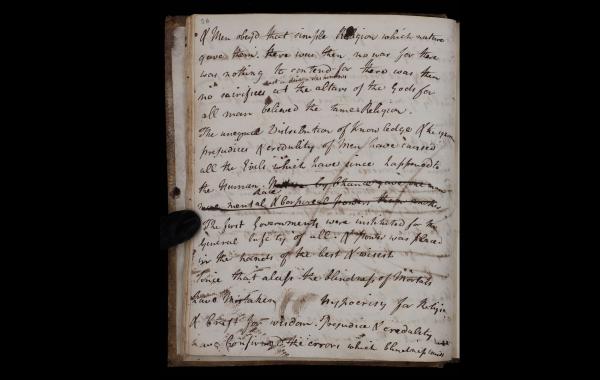 & Men obeyd that simple Religion which nature
gave them. there were then no war for there
was nothing to contend for there was then
no sacrifices at the altars of the Gods for
all men believed the same Religion.
The unequal Distribution of Knowledge & the
prejudices & credulity of Men have caused
all the Evils which have since happened to
the Human Race by chance gave one man
more mental & corporeal powers than another
The first Governments were instituted for the
General safety of all. & Power was place
in the hands of the best & wisest
Since that alass the blindness of Mortals
have mistaken hypocrisy for Religion
& Craft for wisdom. Prejudice & credulity
have confirmed the errors which blindness